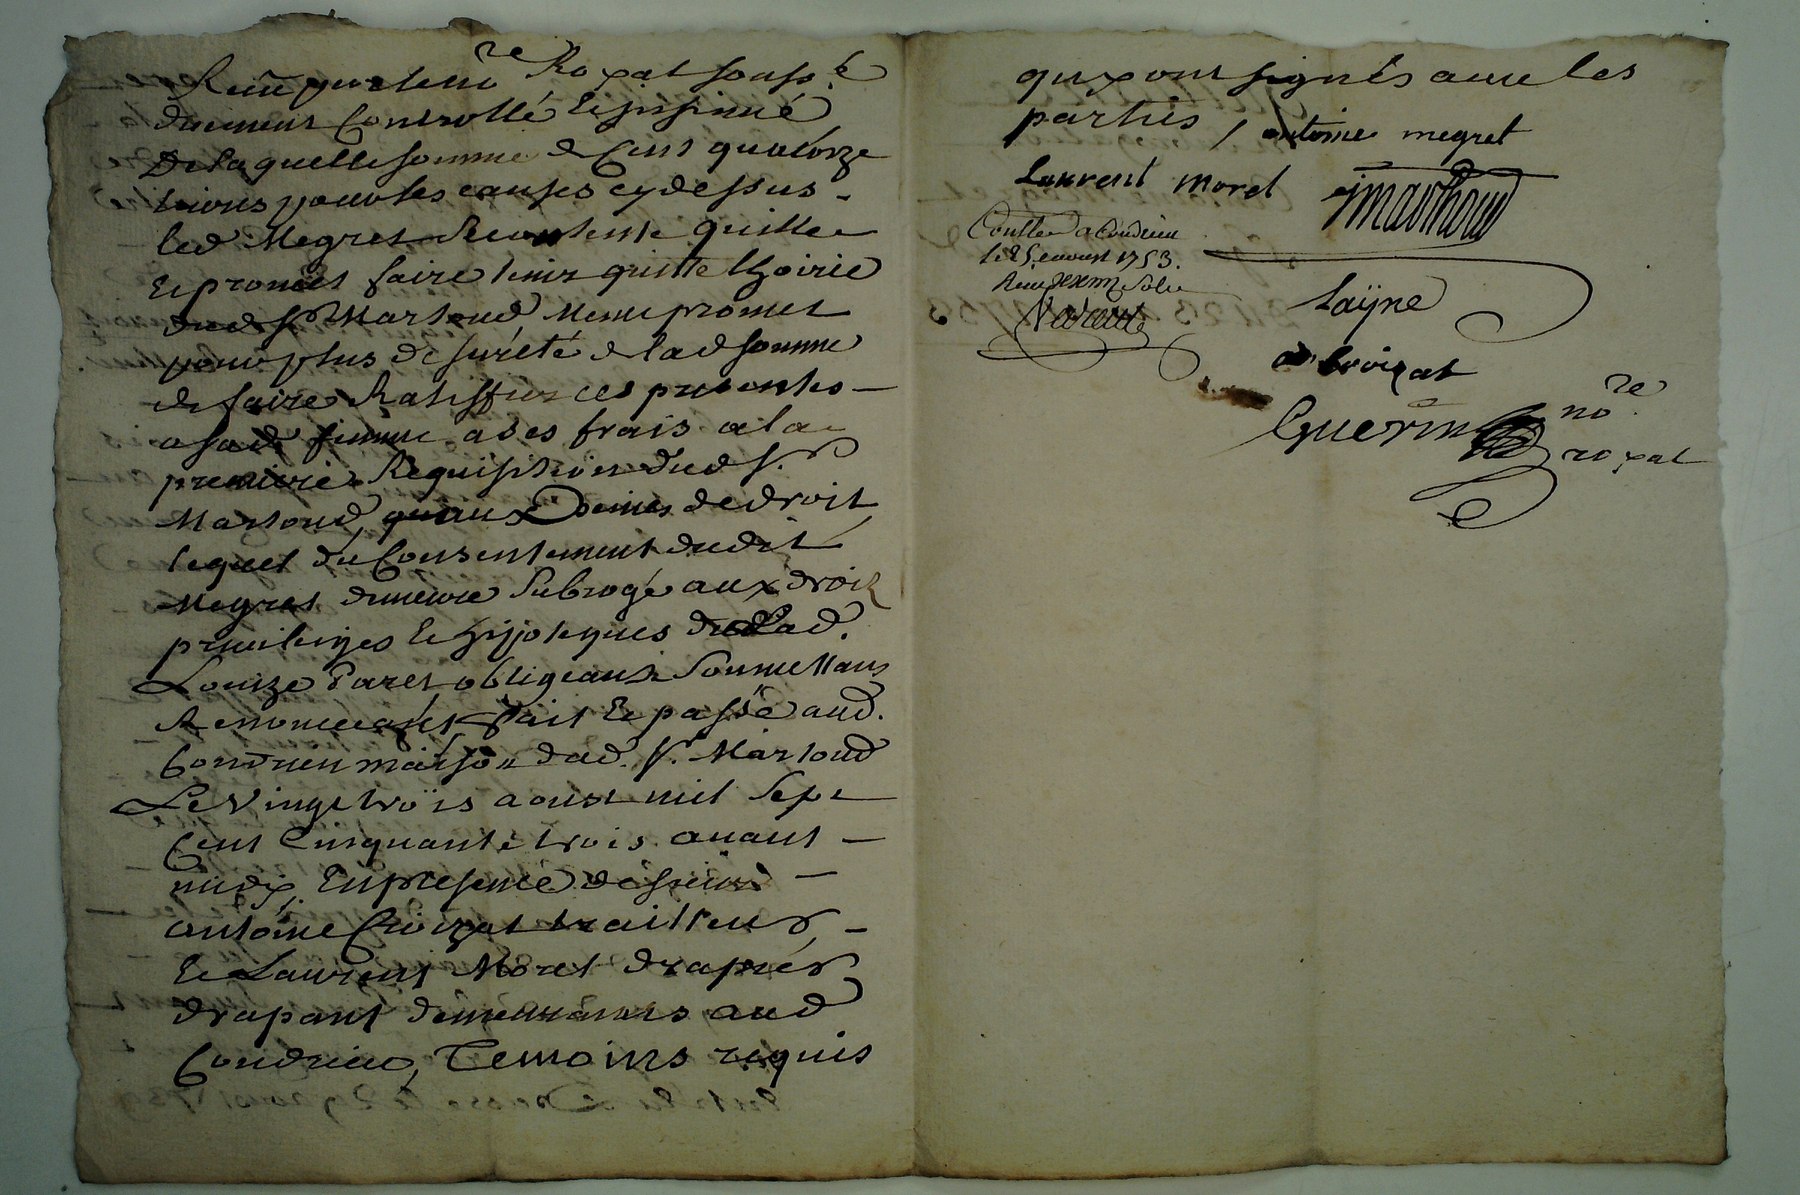 Receu par le no.re Royal souss.é
duement Controllé Et insinué
De laquelle somme de Cent quatorze
livres pour les causes cy dessus -
led Megret se contente quitte
Et promet faire tenir quitte lhoirie
dud Sr Martoud Meme promet
pour plus de sureté de lad somme
de faire Ratiffier ces presentes -
a sad femme a ses frais a la
premiere Requisition dud S.r
Martoud, de droit,
lequel du Consentement dudit
Megret demeure subrogé aux droitz
privileiges Et hypoteques de Lad.
Louize Paret obligeant Soumettans
Renonceant fait Et passé aud.
Condrieu maison dud. Sr. Martoud
Le Vingt trois aoust mil sept
Cent Cinquante trois avant -
midy, En presence de sieurs -
antoine Croizat trailleur, -
Et Laurent Morel drapier
drapant demeurants aud
Condrieu, Temoins requis
quy ont signés avec les
parties / antoine megret
Laurent morel jmarthoud
Conllé a Condrieu
le 25 aoust 1753.
Receu
Laÿne
a Croizat
Guerin no.re
royal